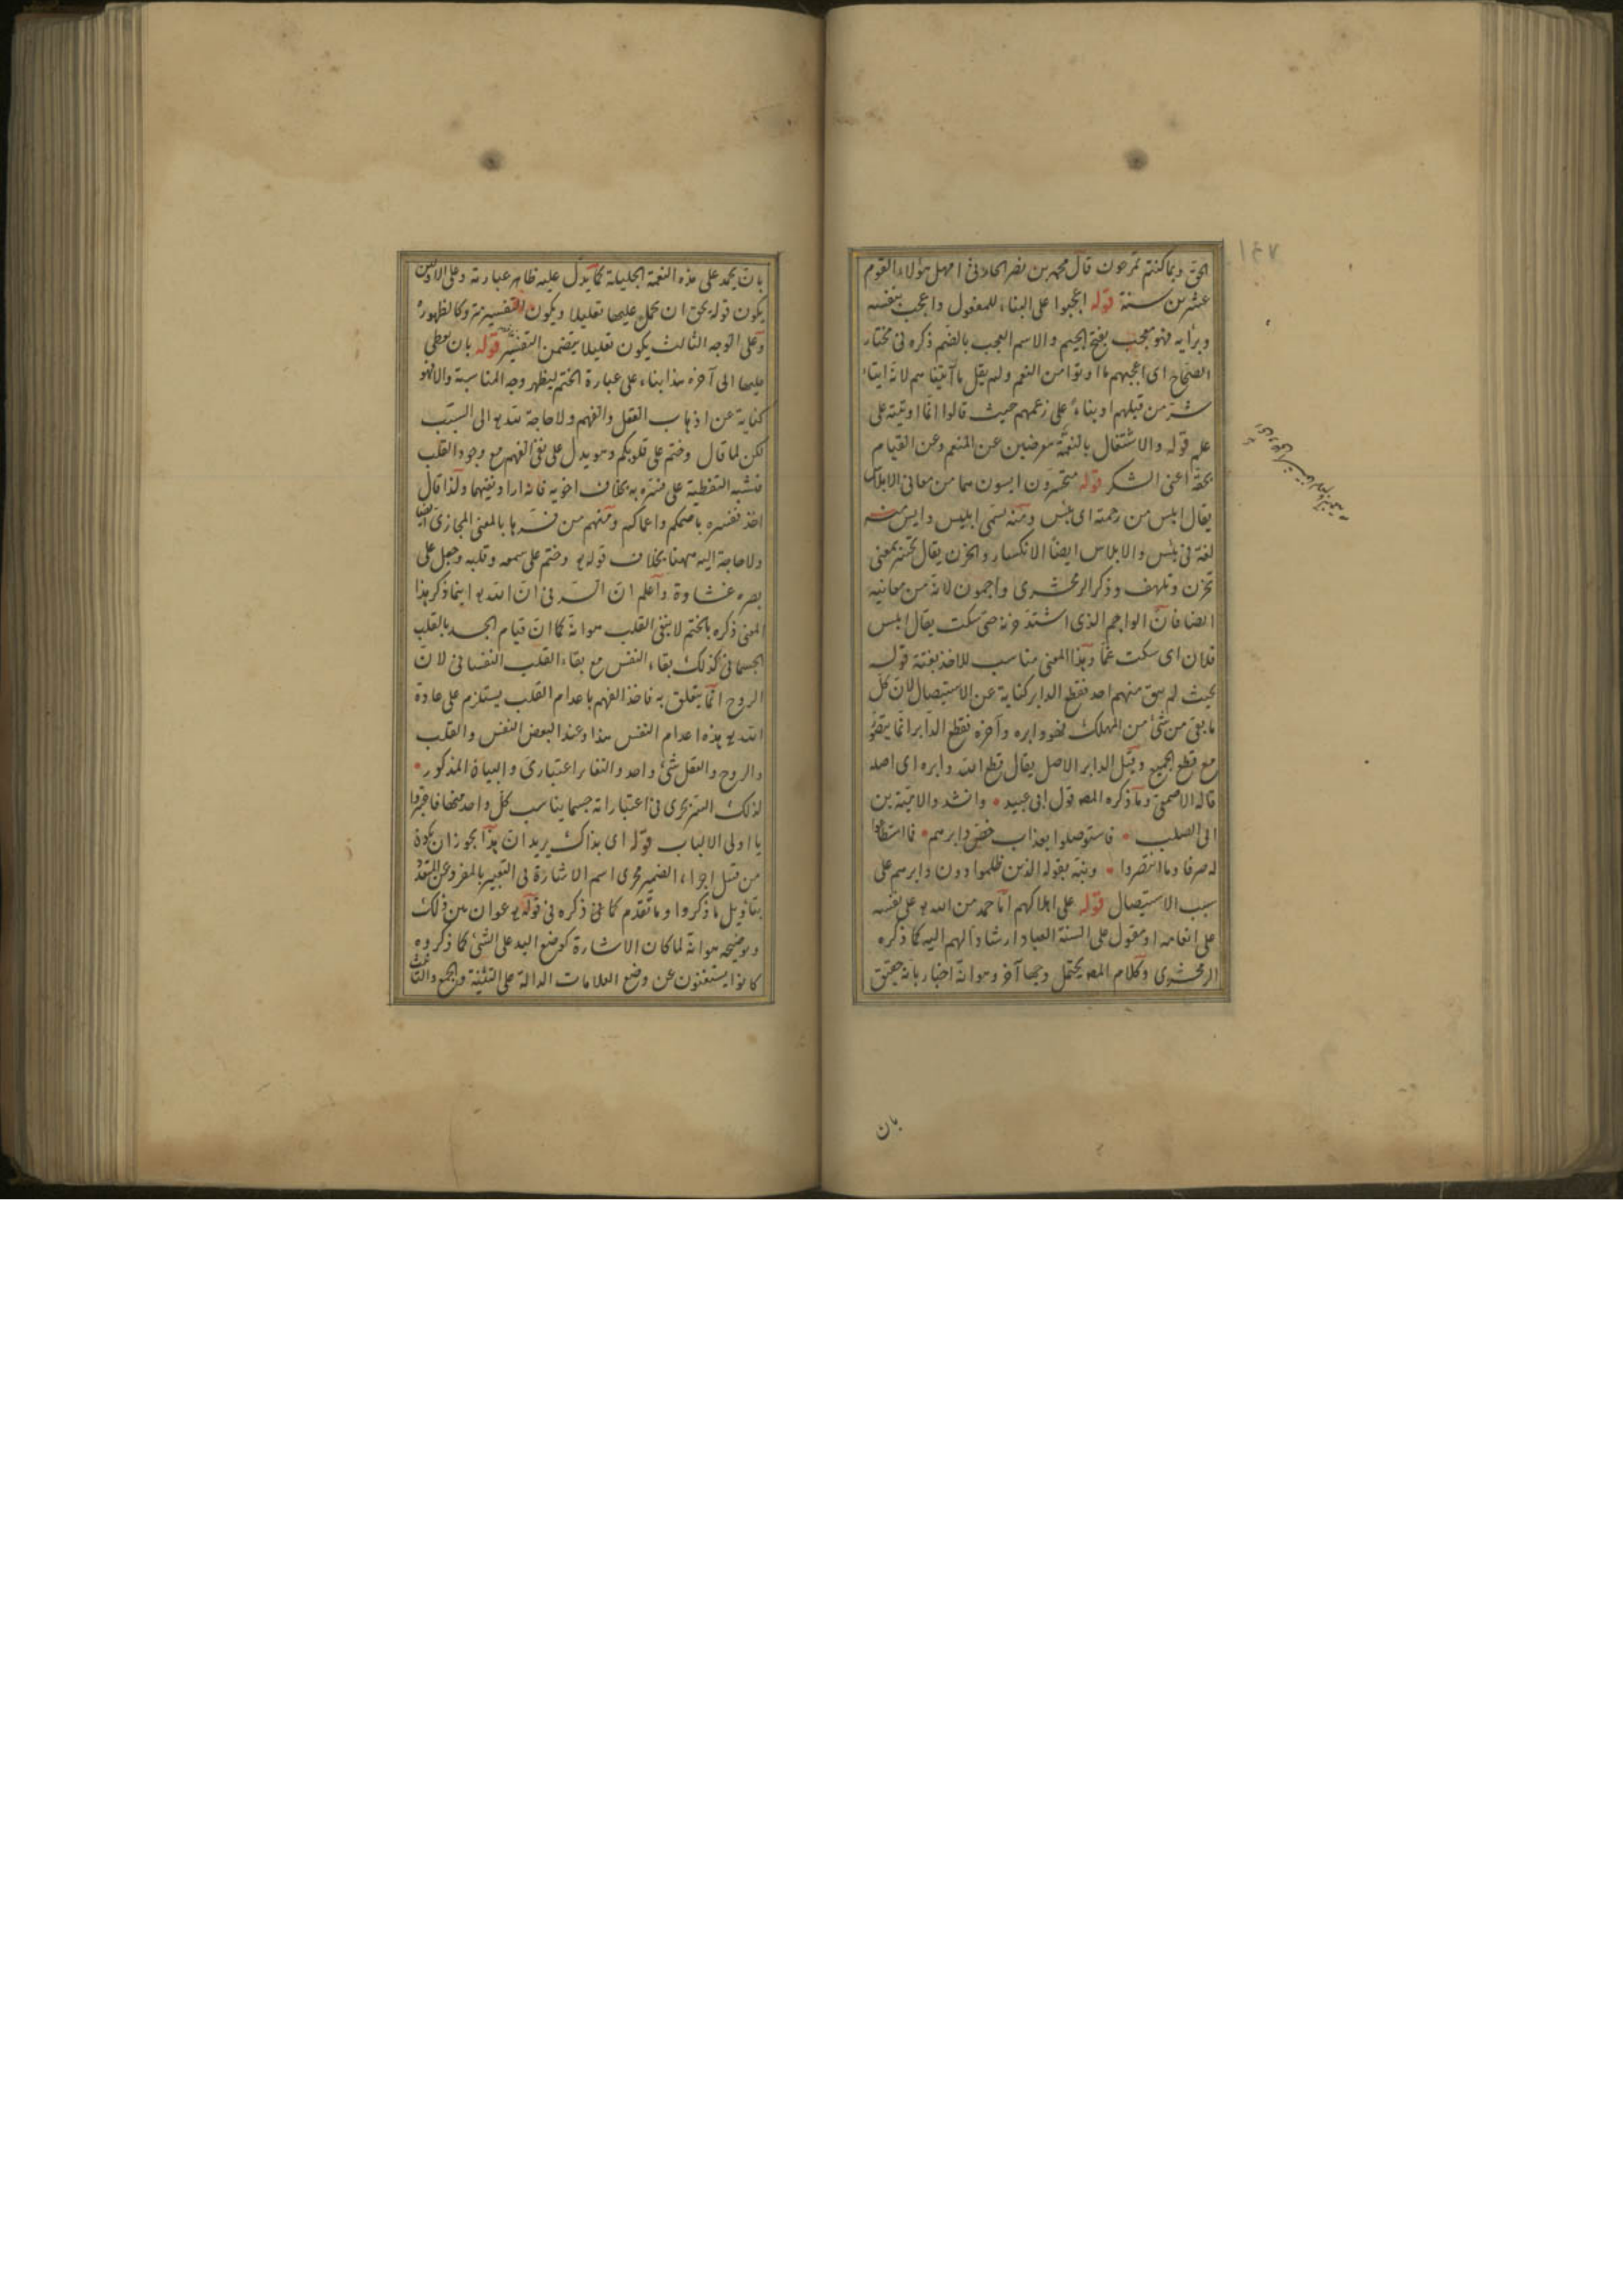 الحق وبما كنتم تمرحون قال محمد بن نضر الحارثى امهل هؤلاء القوم
عشرين سنة قوله اعجبوا على البناء للمفعول واعجب بنفسه
وبرأيه فهو معجب بفتح الجيم والاسم العجب بالضم ذكره فى مختار
الصحاح اى اعجبهم ما اوتوا من النعم ولم يقل ما آتيناهم لانه ايتاء
من قبلهم او بناء على زعمهم حيث قالوا انما اوتيته على
علم قوله والاشتغال بالنعمة معرضين عن المنعم وعن القيام
بحقه اعنى الشكر قوله متحسرون ايسون هما من معانى الابلاس
يقال ابلس من رحمته اى يئس ومنه سمى ابليس وايس منه
لغة فى يئس والابلاس ايضا الانكسار والحزن يقال تحسر بمعنى
تحزن وتلهف وذكر الزمخشرى واجمون لانه من معانيه
ايضا فان الواجم الذى اشتد حزنه حتى سكت يقال ابلس
فلان اى سكت غما وهذا المعنى مناسب للاخذ بغتة قوله
بحيث لم يبق منهم احد فقطع الدابر كناية عن الاستيصال لان كل
ما بقى من شئ من المهلك فهو دابره وآخره فقطع الدابر انما
مع قطع الجميع وقيل الدابر الاصل يقال قطع الله دابره اى اصله
قاله الاصمعى وما ذكره المص قول ابى عبيد وانشد لامية بن
ابى الصلب فاستوصلوا بعذاب خص دابرهم فما استطاعوا
له صرفا وما انتصروا ونبه بقوله الذين ظلموا دون دابرهم على
سبب الاستيصال قوله على اهلاكهم اما حمد من الله يو على نفسه
على انعامه او مقول على السنة العباد ارشادا لهم اليه كما ذكره
الزمخشرى وكلام المص يحتمل وجها آخر وهو انه اخبار بانه حقيق
بان
١٤٧
بان يحمد على هذه النعمة الجليلة كما يدل عليه ظاهر عبارته وعلى الاولين
يكون قوله يحق ان يحمل عليها تعليلا ويكون التفسير متروكا لظهوره
وعلى الوجه الثالث يكون تعليلا يتضمن التفسير قوله بان يغطى
عليها الى آخره هذا بناء على عبارة الختم ليظهر وجه المناسبة والا فهو
كناية عن اذهاب العقل والفهم ولا حاجة الى السبب
لكن لما قال وختم على قلوبكم وهو يدل على نفى الفهم مع وجود القلب
التغطية على بخلاف اخويه ولذا قال
اخذ ففسره باصمكم واعماكم ومنهم من فسرها بالمعنى المجازى ايضا
ولا حاجة اليه ههنا بخلاف قوله يو وختم على سمعه وقلبه وجعل على
بصره غشاوة واعلم ان السر فى ان الله يو اينما ذكر هذا
المعنى ذكره بالختم لا بنفى القلب هو انه كما ان قيام الجسد بالقلب
الجسمانى كذلك بقاء النفس مع بقاء القلب النفسانى لان
الروح انما يتعلق به فاخذ الفهم باعدام القلب يستلزم على عادة
الله يو هذه اعدام النفس هذا وعند البعض النفس والقلب
والروح والعقل شئ واحد والتغاير اعتبارى والبيان المذكور
لذلك السر يجرى فى اعتباراته حسبما يناسب كل واحد منها فاعتبروا
يا اولى الالباب قوله اى بذاك يريد ان هذا يجوز ان يكون
من قبيل اجراء الضمير مجرى اسم الاشارة فى التعبير بالمفرد عن المتعدد
بتاويل ما ذكروا وما تقدم كما فى ذكره فى قوله يو عوان بين ذلك
وتوضيحه هو انه لما كان الاشارة كوضع اليد على الشئ كما ذكروه
كانوا يستغنون عن وضع العلامات الدالة على التثنية والجمع والتانيث